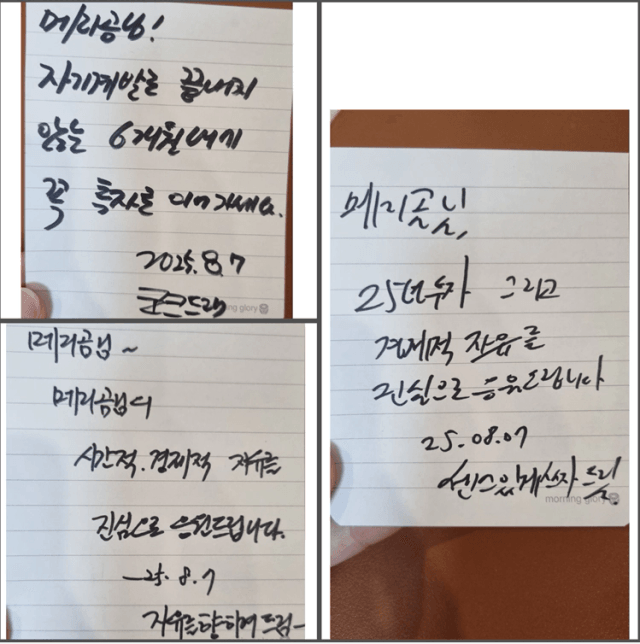 메리공님!
자기계발로 끝내지
않는 6개월내기
꼭 투자로 이어가세요.
2025. 8. 7
드림
morning glory
메리공님~
메리공님의
시간적. 경제적 자유를
진심으로 응원드립니다.
25. 8. 7
자유를향하여 드림-
메리공님,
25년 투자 그리고
경제적 자유를
진심으로 응원드립니다
25.08.07
센스있게쓰자 드림.
morning glory